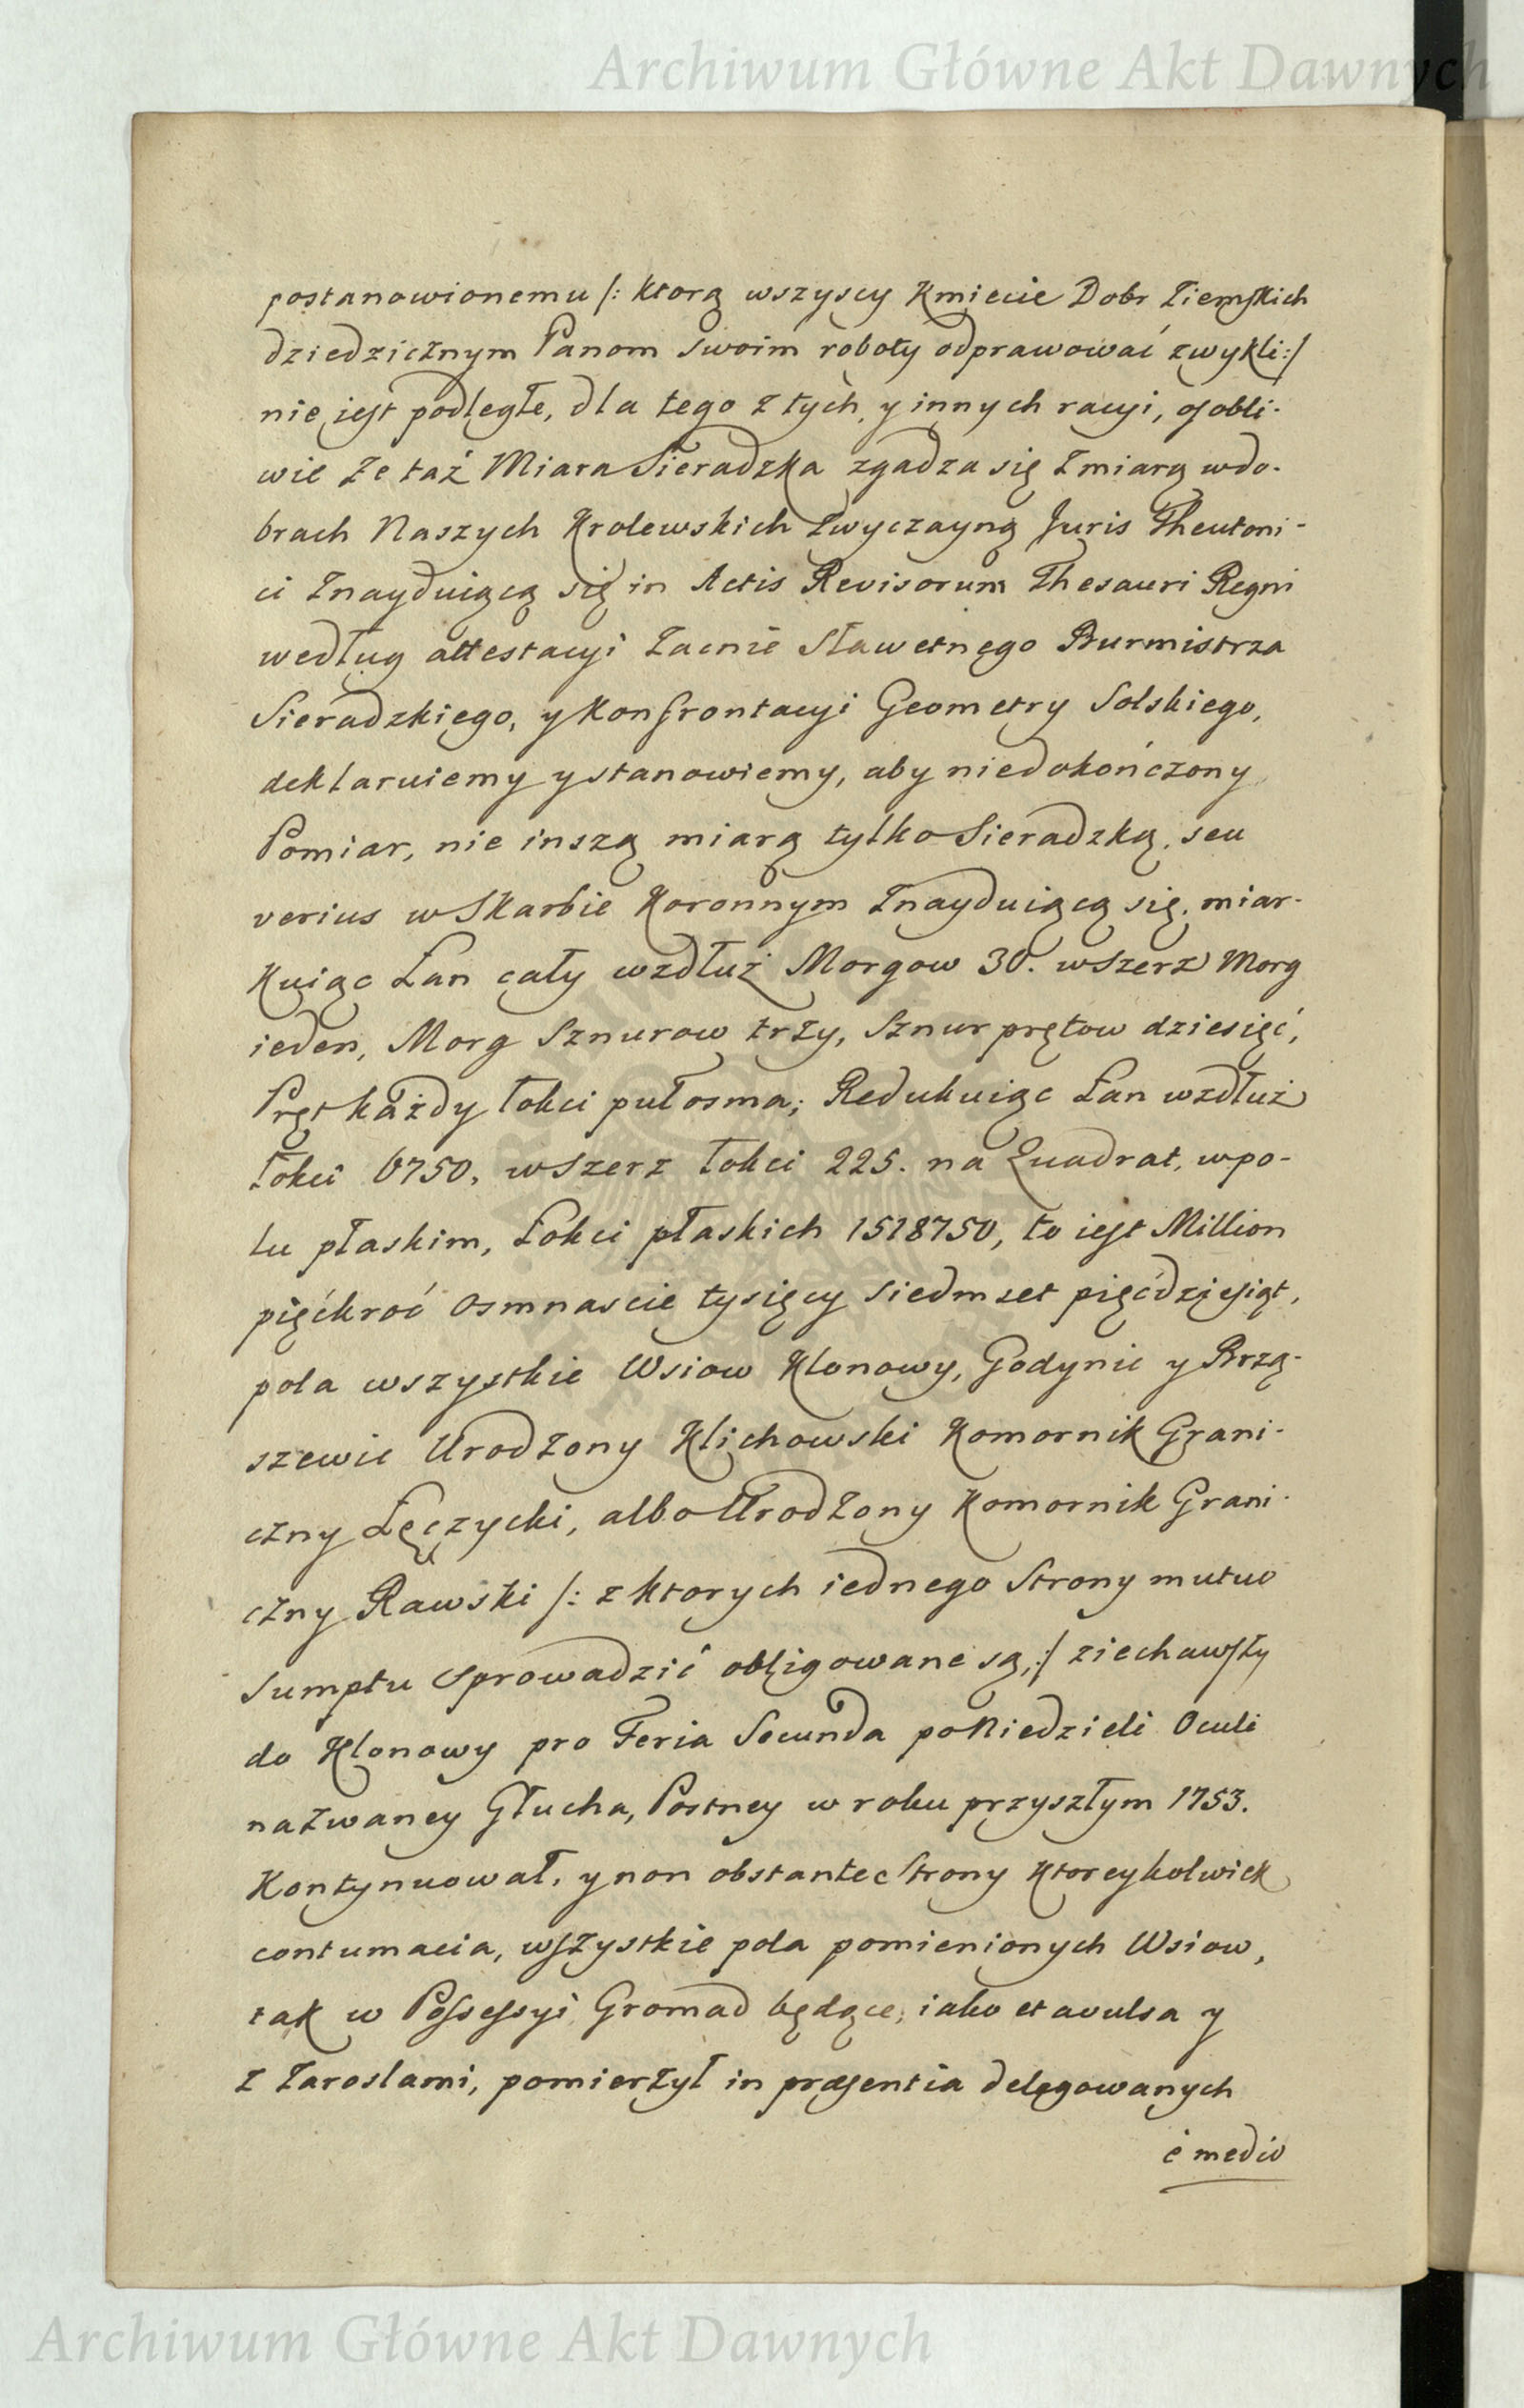 Archiwum Główne Akt Dawnych
postanowionemu /: ktorą wszyscy Kmiecie Dobr Ziemskich
dziedzicznym Panom swoim roboty odprawować zwykli :/
nie iest podległe, dla tego z tych, y innych racyi, osobli-
wie że taż Miara Sieradzka zgadza się z miarą w do-
brach Naszych Krolewskich zwyczayną Juris Theutoni-
ci znayduiącą się in Actis Revisorum Thesauri Regni
według attestacyi zacnie Sławetnego Burmistrza
Sieradzkiego, y Konfrontacyi Geometry Solskiego,
deklaruiemy y stanowiemy, aby niedokończony
Pomiar, nie inszą miarą tylko Sieradzką, seu
verius w Skarbie Koronnym znayduiącą się, miar-
kuiąc Łan cały wzdłuż Morgow 30. wszerz Morg
ieden, Morg Sznurow trzy, Sznur prętow dziesięć,
Pręt każdy łokci pułosma; Redukuiąc Łan wzdłuż
łokci 6750, wszerz łokci 225. na Quadrat, w po-
lu płaskim, Łokci płaskich 1518750, to iest Million
pięćkroć osmnascie tysięcy siedmset pięćdziesiąt,
pola wszystkie Wsiow Klonowy, Godynic y Brzą-
szewic Urodzony Klichowski Komornik Grani-
czny Łęczycki, albo Urodzony Komornik Grani-
czny Rawski /: z ktorych iednego Strony mutuo
sumptu sprowadzić obligowane są, :/ ziechawszy
do Klonowy pro Feria Secunda po Niedzieli Oculi
nazwaney Głucha, Postney w roku przyszłym 1753.
Kontynuował, y non obstante Strony ktoreykolwiek
contumacia, wszystkie pola pomienionych Wsiow,
tak w Possessyi Gromad będące, iako et avulsa y
z zaroslami, pomierzył in præsentia delegowanych
è medio
Archiwum Główne Akt Dawnych